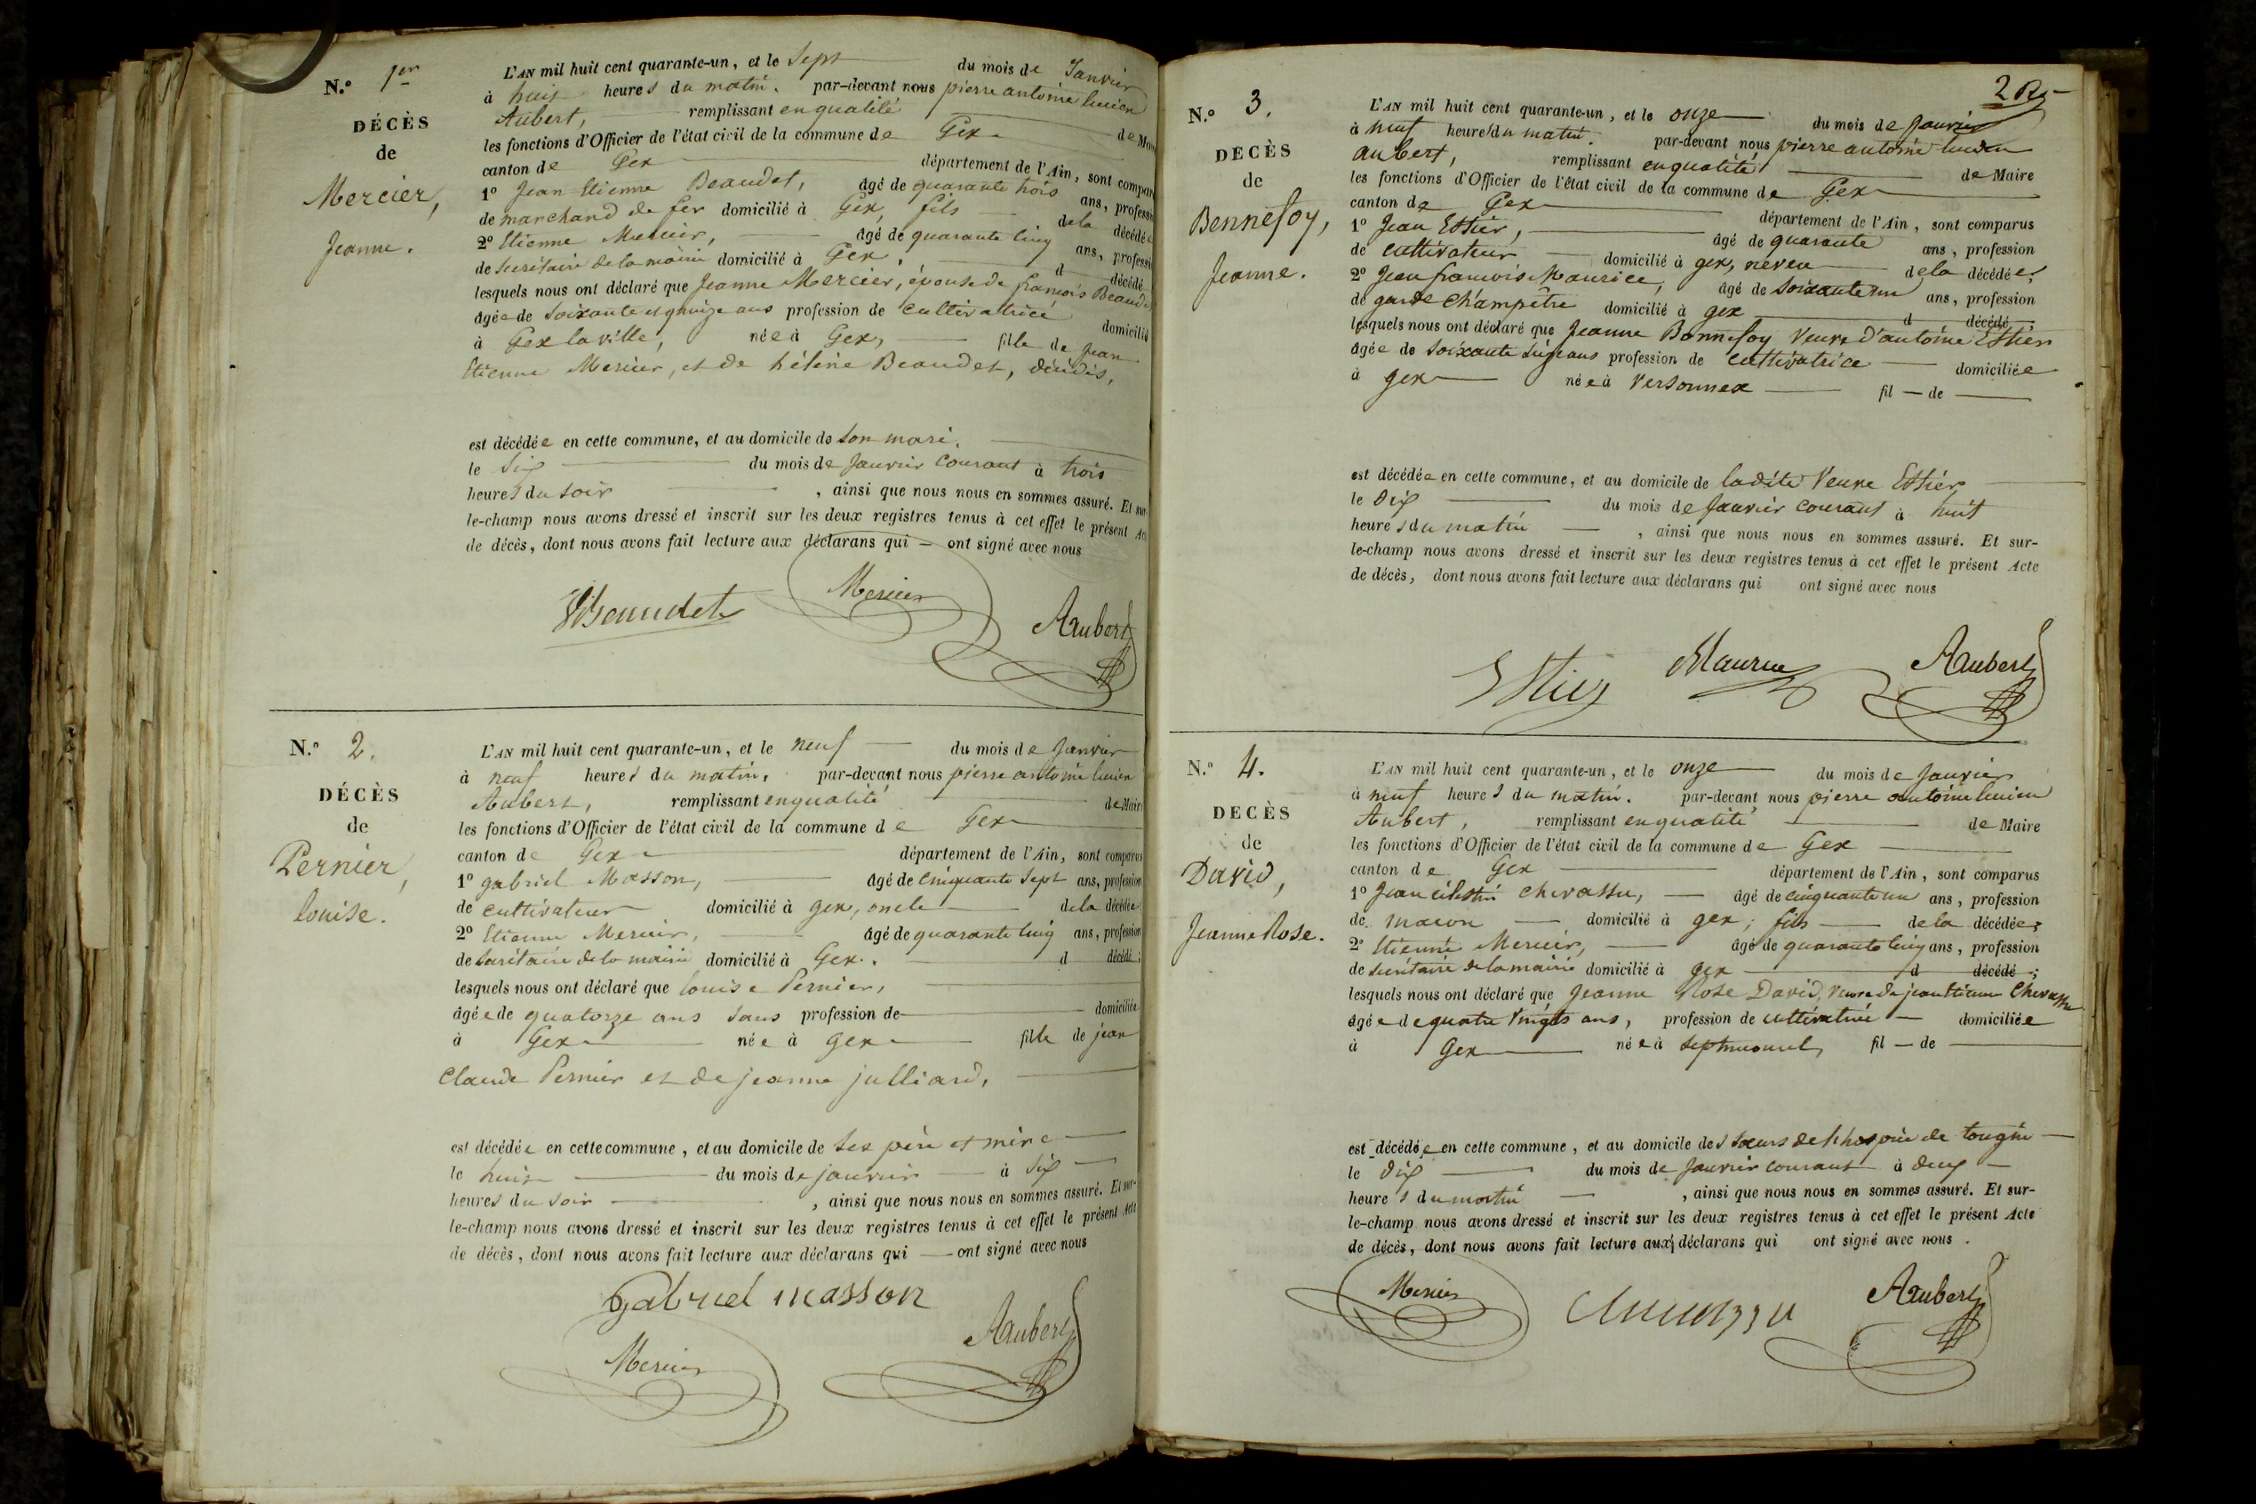 N.º 1er
DÉCÈS
de
Mercier,
Jeanne.
L'AN mil huit cent quarante-un, et le Sept du mois de Janvier
à huit heures du matin. par-devant nous pierre antoine lucien
Aubert, remplissant en qualité de
les fonctions d'Officier de l'état civil de la commune de Gex
canton de Gex département de l'Ain, sont
1º Jean Etienne Beaudet, âgé de quarante trois ans,
de marchand de fer domicilié à Gex, fils dela décédée
2º Etienne Mercier, âgé de quarante cinq ans,
de Secrétaire de la mairie domicilié à Gex. d décédé
lesquels nous ont déclaré que Jeanne Mercier, épouse de françois
âgée de Soixante et quinze ans profession de cultivatrice
à Gex la ville, née à Gex, fille de Jean
Etienne Mercier, et de hélène Beaudet, décédés,
est décédée en cette commune, et au domicile de Son mari.
le Six du mois de Janvier Courant à trois
heures du soir, ainsi que nous nous en sommes assuré. Et sur-
le-champ nous avons dressé et inscrit sur les deux registres tenus à cet effet le présent
de décès, dont nous avons fait lecture aux déclarans qui — ont signé avec nous
Beaudet Mercier Aubert
N.º 2.
DÉCÈS
de
Pernier,
louise.
L'AN mil huit cent quarante-un, et le neuf du mois de Janvier
à neuf heures du matin. par-devant nous pierre antoine lucien
Aubert, remplissant en qualité de Maire
les fonctions d'Officier de l'état civil de la commune de Gex
canton de Gex département de l'Ain, sont comparus
1º gabriel Masson, âgé de cinquante Sept ans, profession
de cultivateur domicilié à gex, oncle dela décédée
2º Etienne Mercier, âgé de quarante cinq ans, profession
de Secrétaire de la mairie domicilié à Gex. d décédé;
lesquels nous ont déclaré que louise Pernier,
âgée de quatorze ans Sans profession de domiciliée
à Gex née à gex fille de jean
Claude Pernier et de jeanne julliard,
est décédée en cette commune, et au domicile de Ses père et mère
le huit du mois de janvier à Six
heures du soir, ainsi que nous nous en sommes assuré. Et sur-
le-champ nous avons dressé et inscrit sur les deux registres tenus à cet effet le présent Acte
de décès, dont nous avons fait lecture aux déclarans qui — ont signé avec nous
Gabriel masson
Mercier Aubert
N.º 3.
DECÈS
de
Bennefoy,
Jeanne.
L'AN mil huit cent quarante-un, et le onze du mois de Janvier
à neuf heures du matin. par-devant nous pierre antoine lucien
Aubert, remplissant en qualité de Maire
les fonctions d'Officier de l'état civil de la commune de Gex
canton de Gex département de l'Ain, sont comparus
1º Jean Esthier, âgé de quarante ans, profession
de cultivateur domicilié à gex, neveu dela décédée;
2º Jean françois Maurice, âgé de Soixante un ans, profession
de garde champêtre domicilié à gex d décédé
lesquels nous ont déclaré que Jeanne Bonnefoy Veuve D'antoine Esthier
âgée de Soixante Seize ans profession de Cultivatrice domiciliée
à gex née à Versonnex fil — de
est décédée en cette commune, et au domicile de ladite Veuve Esthier
le Dix du mois de Janvier Courant à huit
heures du matin, ainsi que nous nous en sommes assuré. Et sur-
le-champ nous avons dressé et inscrit sur les deux registres tenus à cet effet le présent Acte
de décès, dont nous avons fait lecture aux déclarans qui ont signé avec nous
Maurice Aubert
N.º 4.
DECÈS
de
David,
Jeanne Rose.
L'AN mil huit cent quarante-un, et le onze du mois de Janvier
à neuf heures du matin. par-devant nous pierre antoine lucien
Aubert, remplissant en qualité de Maire
les fonctions d'Officier de l'état civil de la commune de Gex
canton de Gex département de l'Ain, sont comparus
1º Jean célestin Chevassu, âgé de cinquante un ans, profession
de macon domicilié à gex, fils dela décédée;
2º Etienne Mercier, âgé de quarante cinq ans, profession
de Secrétaire de la mairie domicilié à gex d décédé;
lesquels nous ont déclaré que Jeanne Rose David, Veuve de jean Etienne Chevassu
âgée de quatre Vingts ans, profession de cultivatrice domiciliée
à Gex née à Septmoncel, fil — de
est décédée en cette commune, et au domicile des Sœurs de l'hospice de tougin
le Dix du mois de Janvier courant à deux
heures du matin, ainsi que nous nous en sommes assuré. Et sur-
le-champ nous avons dressé et inscrit sur les deux registres tenus à cet effet le présent Acte
de décès, dont nous avons fait lecture aux déclarans qui ont signé avec nous.
Mercier Aubert